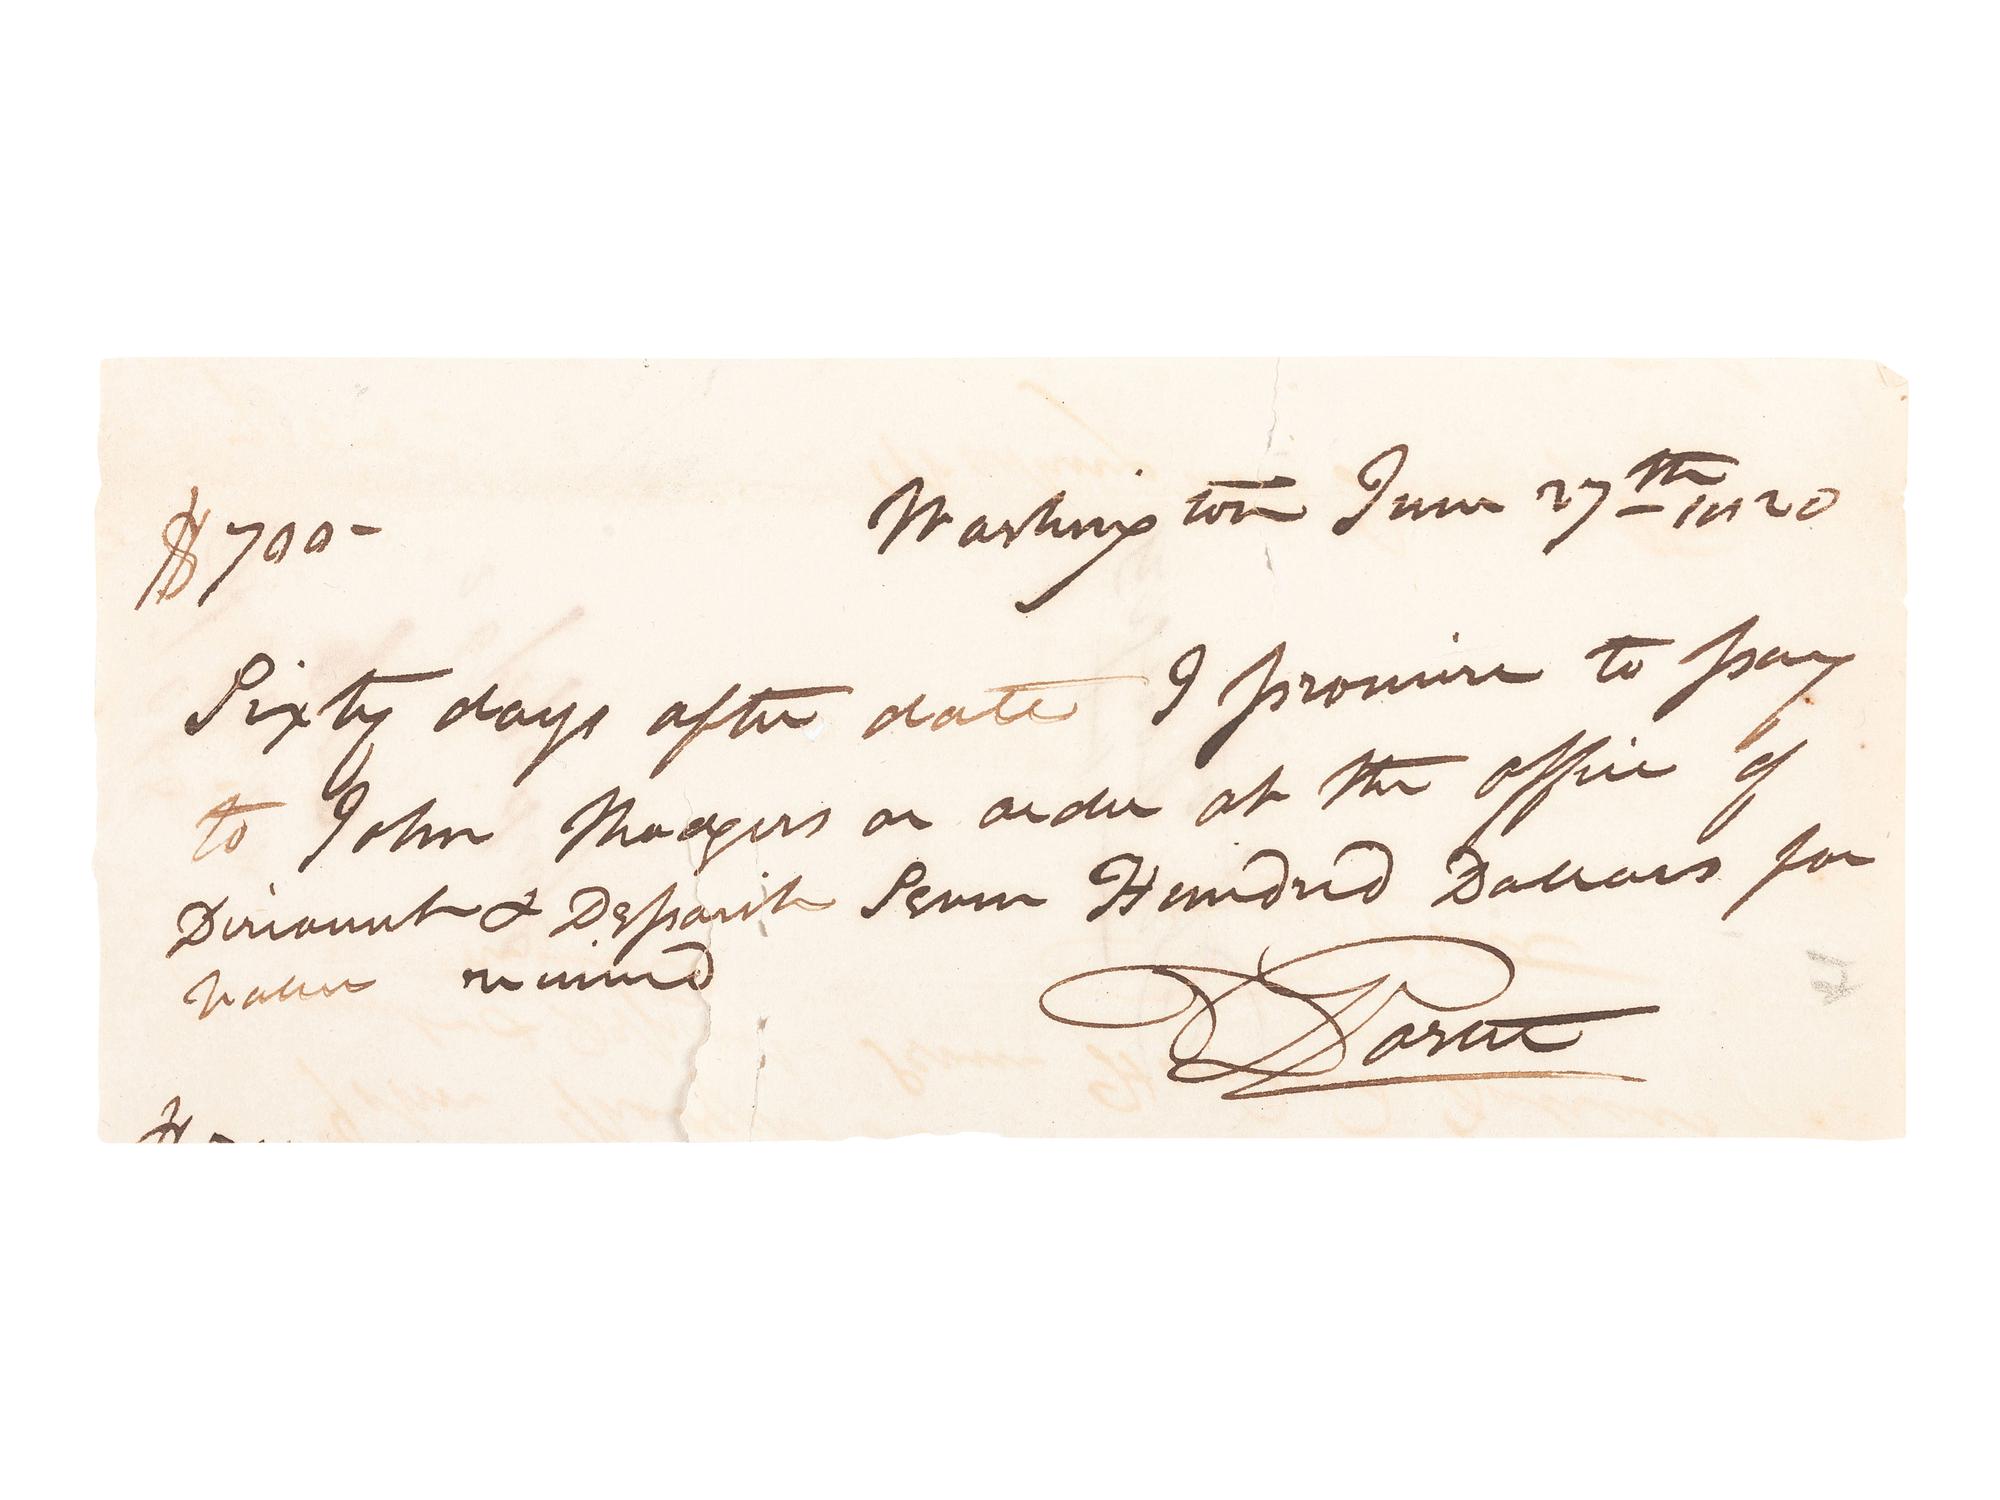 $700-
Washington June 27th 1820
Sixty days after date I promise to pay
to John or order at the office of
Discount & Deposit Seven Hundred Dollars for
value received
D Porter